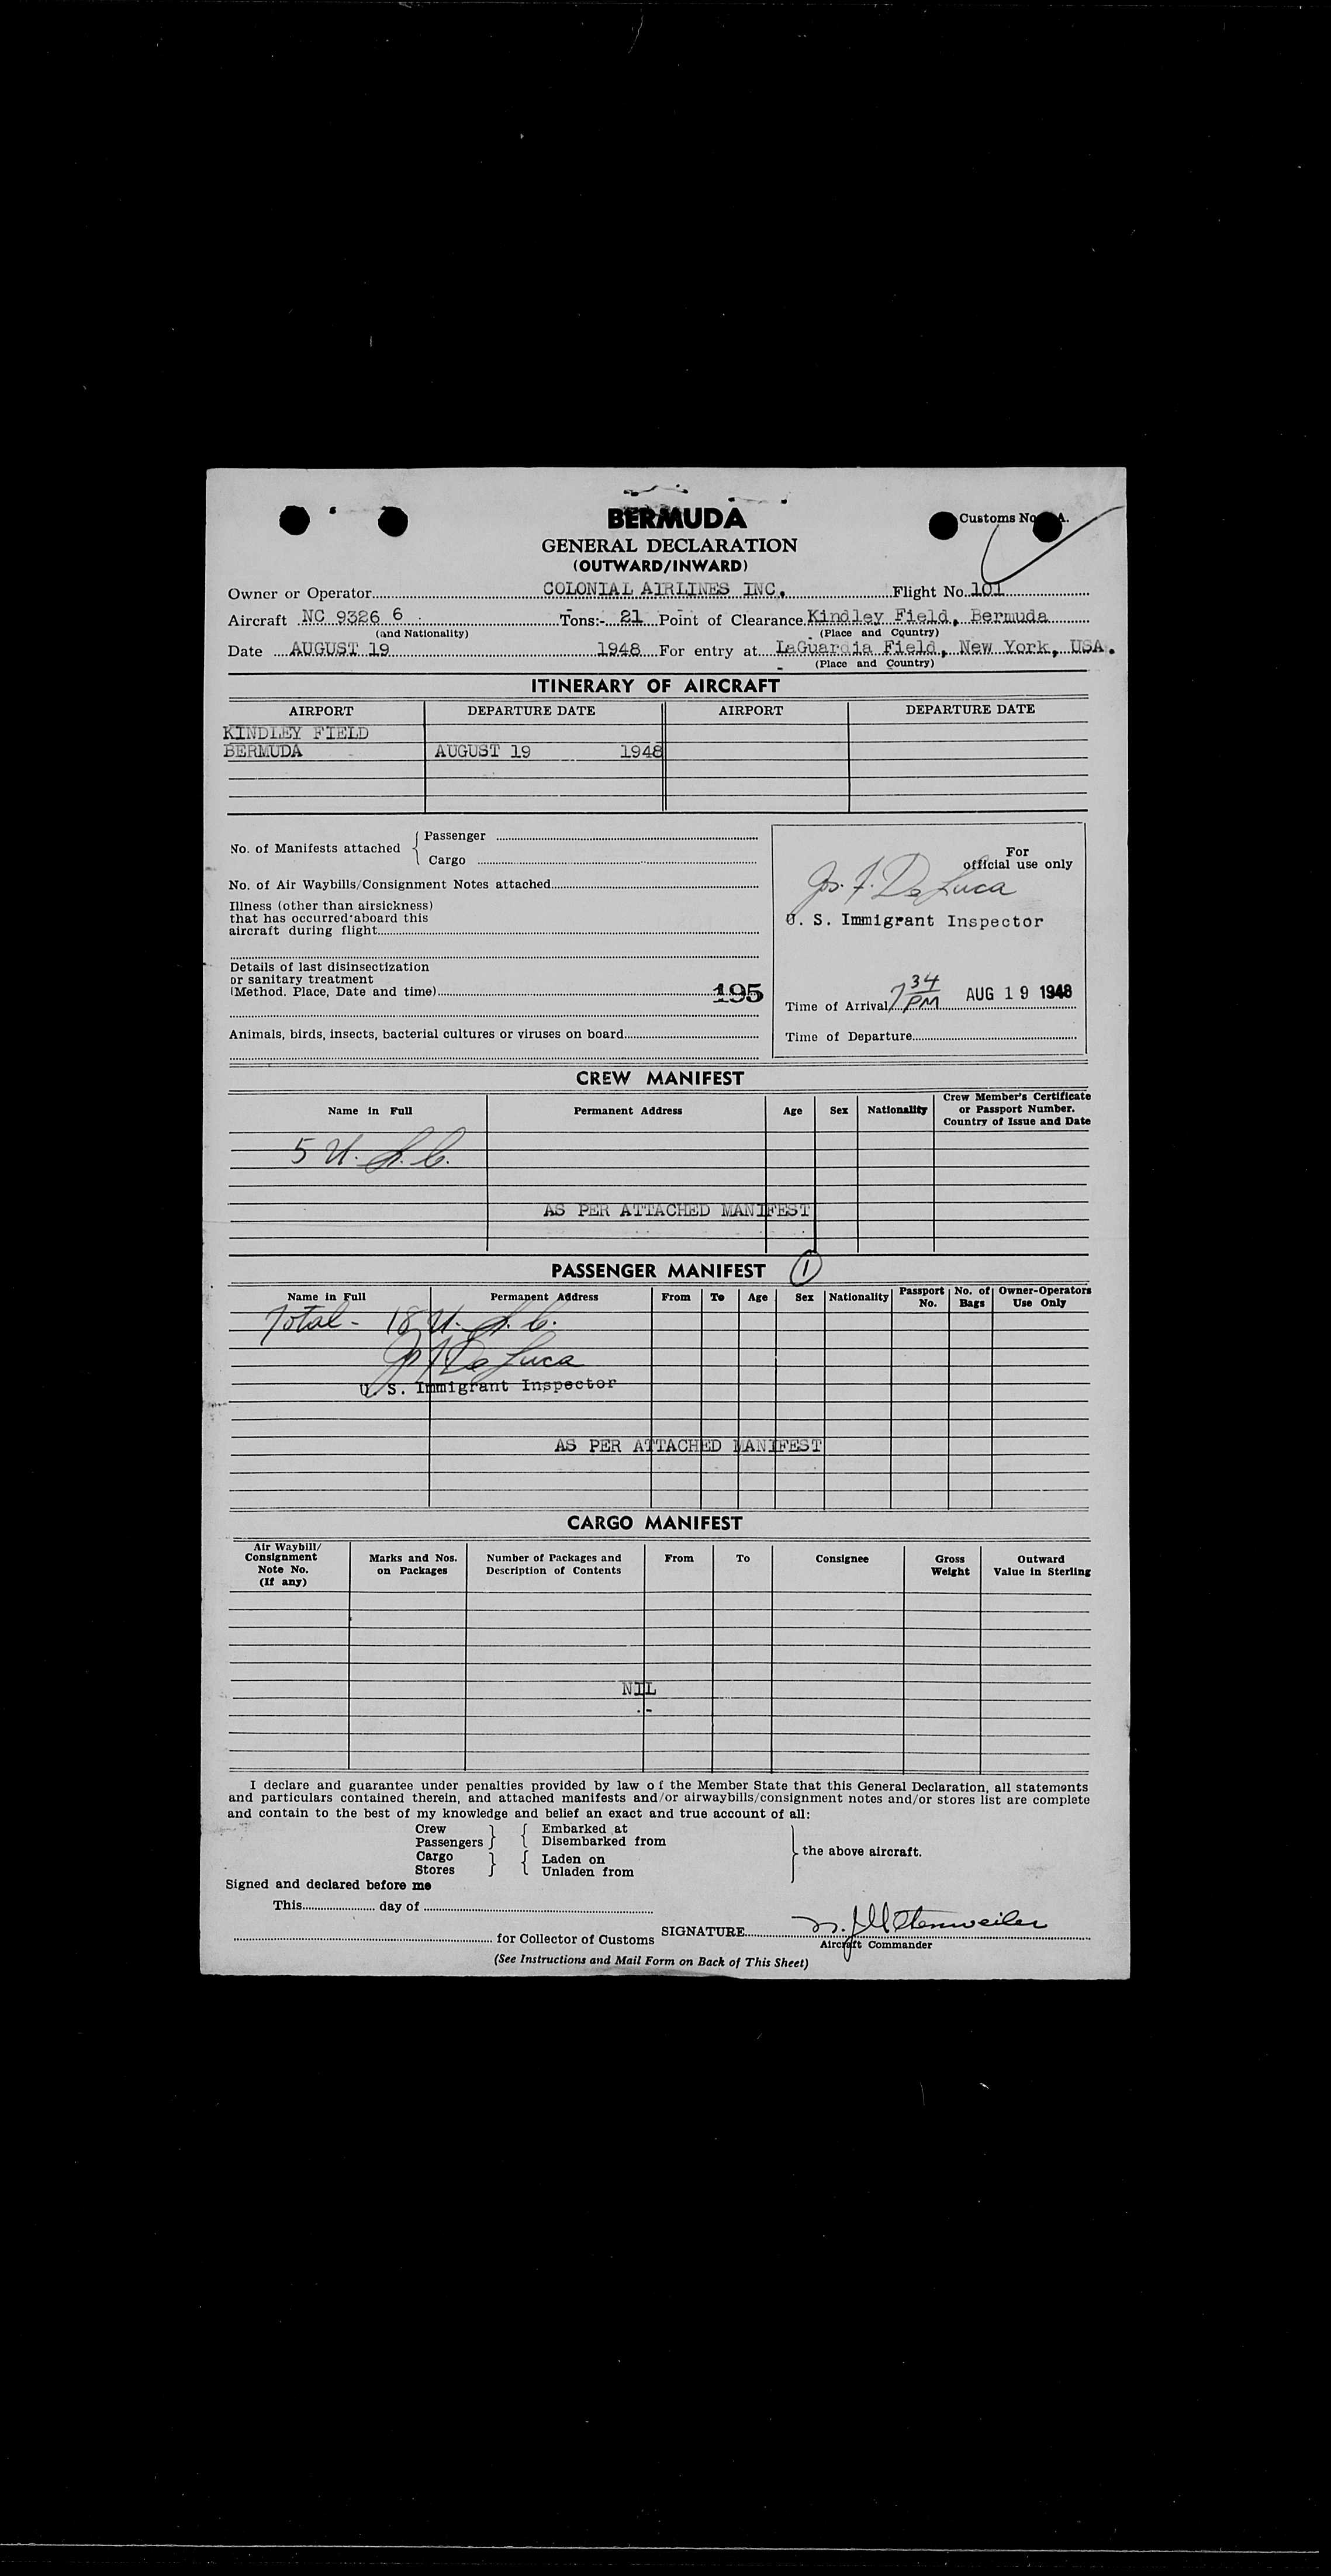 BERMUDA
Customs No. A.
GENERAL DECLARATION
(OUTWARD/INWARD)
Owner or Operator COLONIAL AIRLINES INC. Flight No. 101
Aircraft NC 9326 6 Tons:- 21 Point of Clearance Kindley Field, Bermuda
(and Nationality) (Place and Country)
Date AUGUST 19 1948 For entry at LaGuardia Field, New York, USA.
(Place and Country)
ITINERARY OF AIRCRAFT
AIRPORT DEPARTURE DATE AIRPORT DEPARTURE DATE
KINDLEY FIELD
BERMUDA AUGUST 19 1948
No. of Manifests attached { Passenger
Cargo
No. of Air Waybills/Consignment Notes attached
Illness (other than airsickness)
that has occurred aboard this
aircraft during flight
Details of last disinsectization
or sanitary treatment
(Method. Place, Date and time) 195
Animals, birds, insects, bacterial cultures or viruses on board
For
official use only
Jos. F. De Luca
U. S. Immigrant Inspector
Time of Arrival 7 34 PM AUG 19 1948
Time of Departure
CREW MANIFEST
Name in Full Permanent Address Age Sex Nationality Crew Member's Certificate
or Passport Number.
Country of Issue and Date
5 U. S. C.
AS PER ATTACHED MANIFEST
PASSENGER MANIFEST 1
Name in Full Permanent Address From To Age Sex Nationality Passport No. No. of Bags Owner-Operators Use Only
Total - 18 U. S. C.
Jos F De Luca
U. S. Immigrant Inspector
AS PER ATTACHED MANIFEST
CARGO MANIFEST
Air Waybill/
Consignment
Note No.
(If any)
Marks and Nos.
on Packages
Number of Packages and
Description of Contents
From To Consignee Gross
Weight
Outward
Value in Sterling
NIL
I declare and guarantee under penalties provided by law of the Member State that this General Declaration, all statements
and particulars contained therein, and attached manifests and/or airwaybills/consignment notes and/or stores list are complete
and contain to the best of my knowledge and belief an exact and true account of all:
Crew } { Embarked at
Passengers } { Disembarked from
Cargo } { Laden on
Stores } { Unladen from
} the above aircraft.
Signed and declared before me
This day of
for Collector of Customs SIGNATURE
Aircraft Commander
(See Instructions and Mail Form on Back of This Sheet)